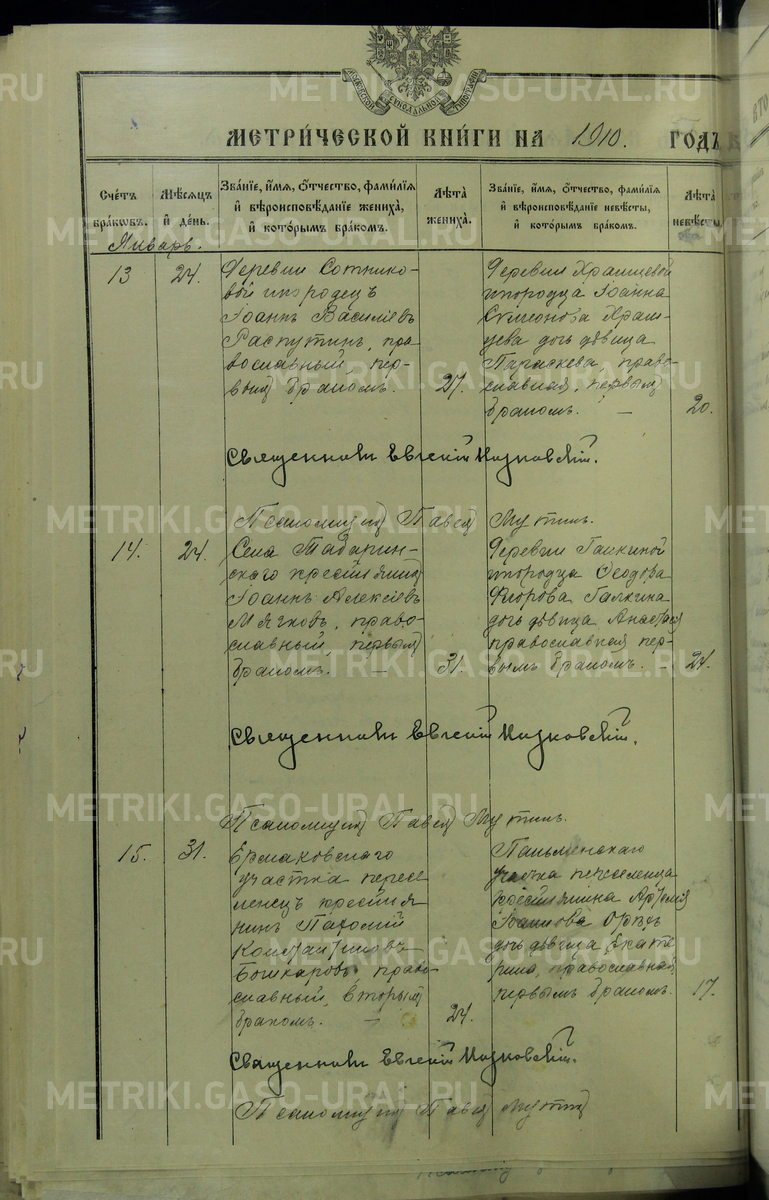 МЕТРИ́ЧЕСКОЙ КНИ́ГИ НА 1910. ГОДЪ
Сче́тъ бра́ковъ.
Мѣ́сяцъ и́ де́нь.
Зва́нїе, и́мя, ѻ́тчество, фами́лїя и́ вѣроисповѣ́данїе жениха̀, и́ кото́рымъ бра́комъ.
Лѣ́та жениха̀.
Зва́нїе, и́мя, ѻ́тчество, фами́лїя и́ вѣроисповѣ́данїе невѣ́сты, и́ кото́рымъ бра́комъ.
Лѣ́та невѣ́сты
Январь.
13
24.
Деревни Сотнико-
вой инородецъ
Іоаннъ Василіевъ
Распутинъ, пра
вославный, пер-
вымъ бракомъ.
27.
Деревни Храмцевой
инородца Іоанна
Симіонова Храм-
цева дочь дѣвица
Параскева, право
славная, первымъ
бракомъ. —
20.
Священникъ Евгеній
Псаломщикъ Павелъ Мутинъ.
14.
24.
Села Табарин-
скаго крестьянинъ
Іоаннъ Алексіевъ
Мягковъ, право-
славный, первымъ
бракомъ. —
31.
Деревни Галкиной
инородца Ѳеодора
Егорова Галкина
дочь дѣвица Анастасія
православная пер-
вымъ бракомъ. —
24.
Священникъ Евгеній
Псаломщикъ Павелъ Мутинъ.
15.
31.
Ермаковскаго
участка пересе
ленецъ крестья
нинъ Пахомій
Константиновъ
Бошкаровъ, право
славный, вторымъ
бракомъ. —
24.
участка переселенца
крестьянина Артемія
дочь дѣвица Екате
рина, православная,
первымъ бракомъ.
17.
Священникъ Евгеній
Псаломщикъ Павелъ Мутинъ
METRIKI.GASO-URAL.RU